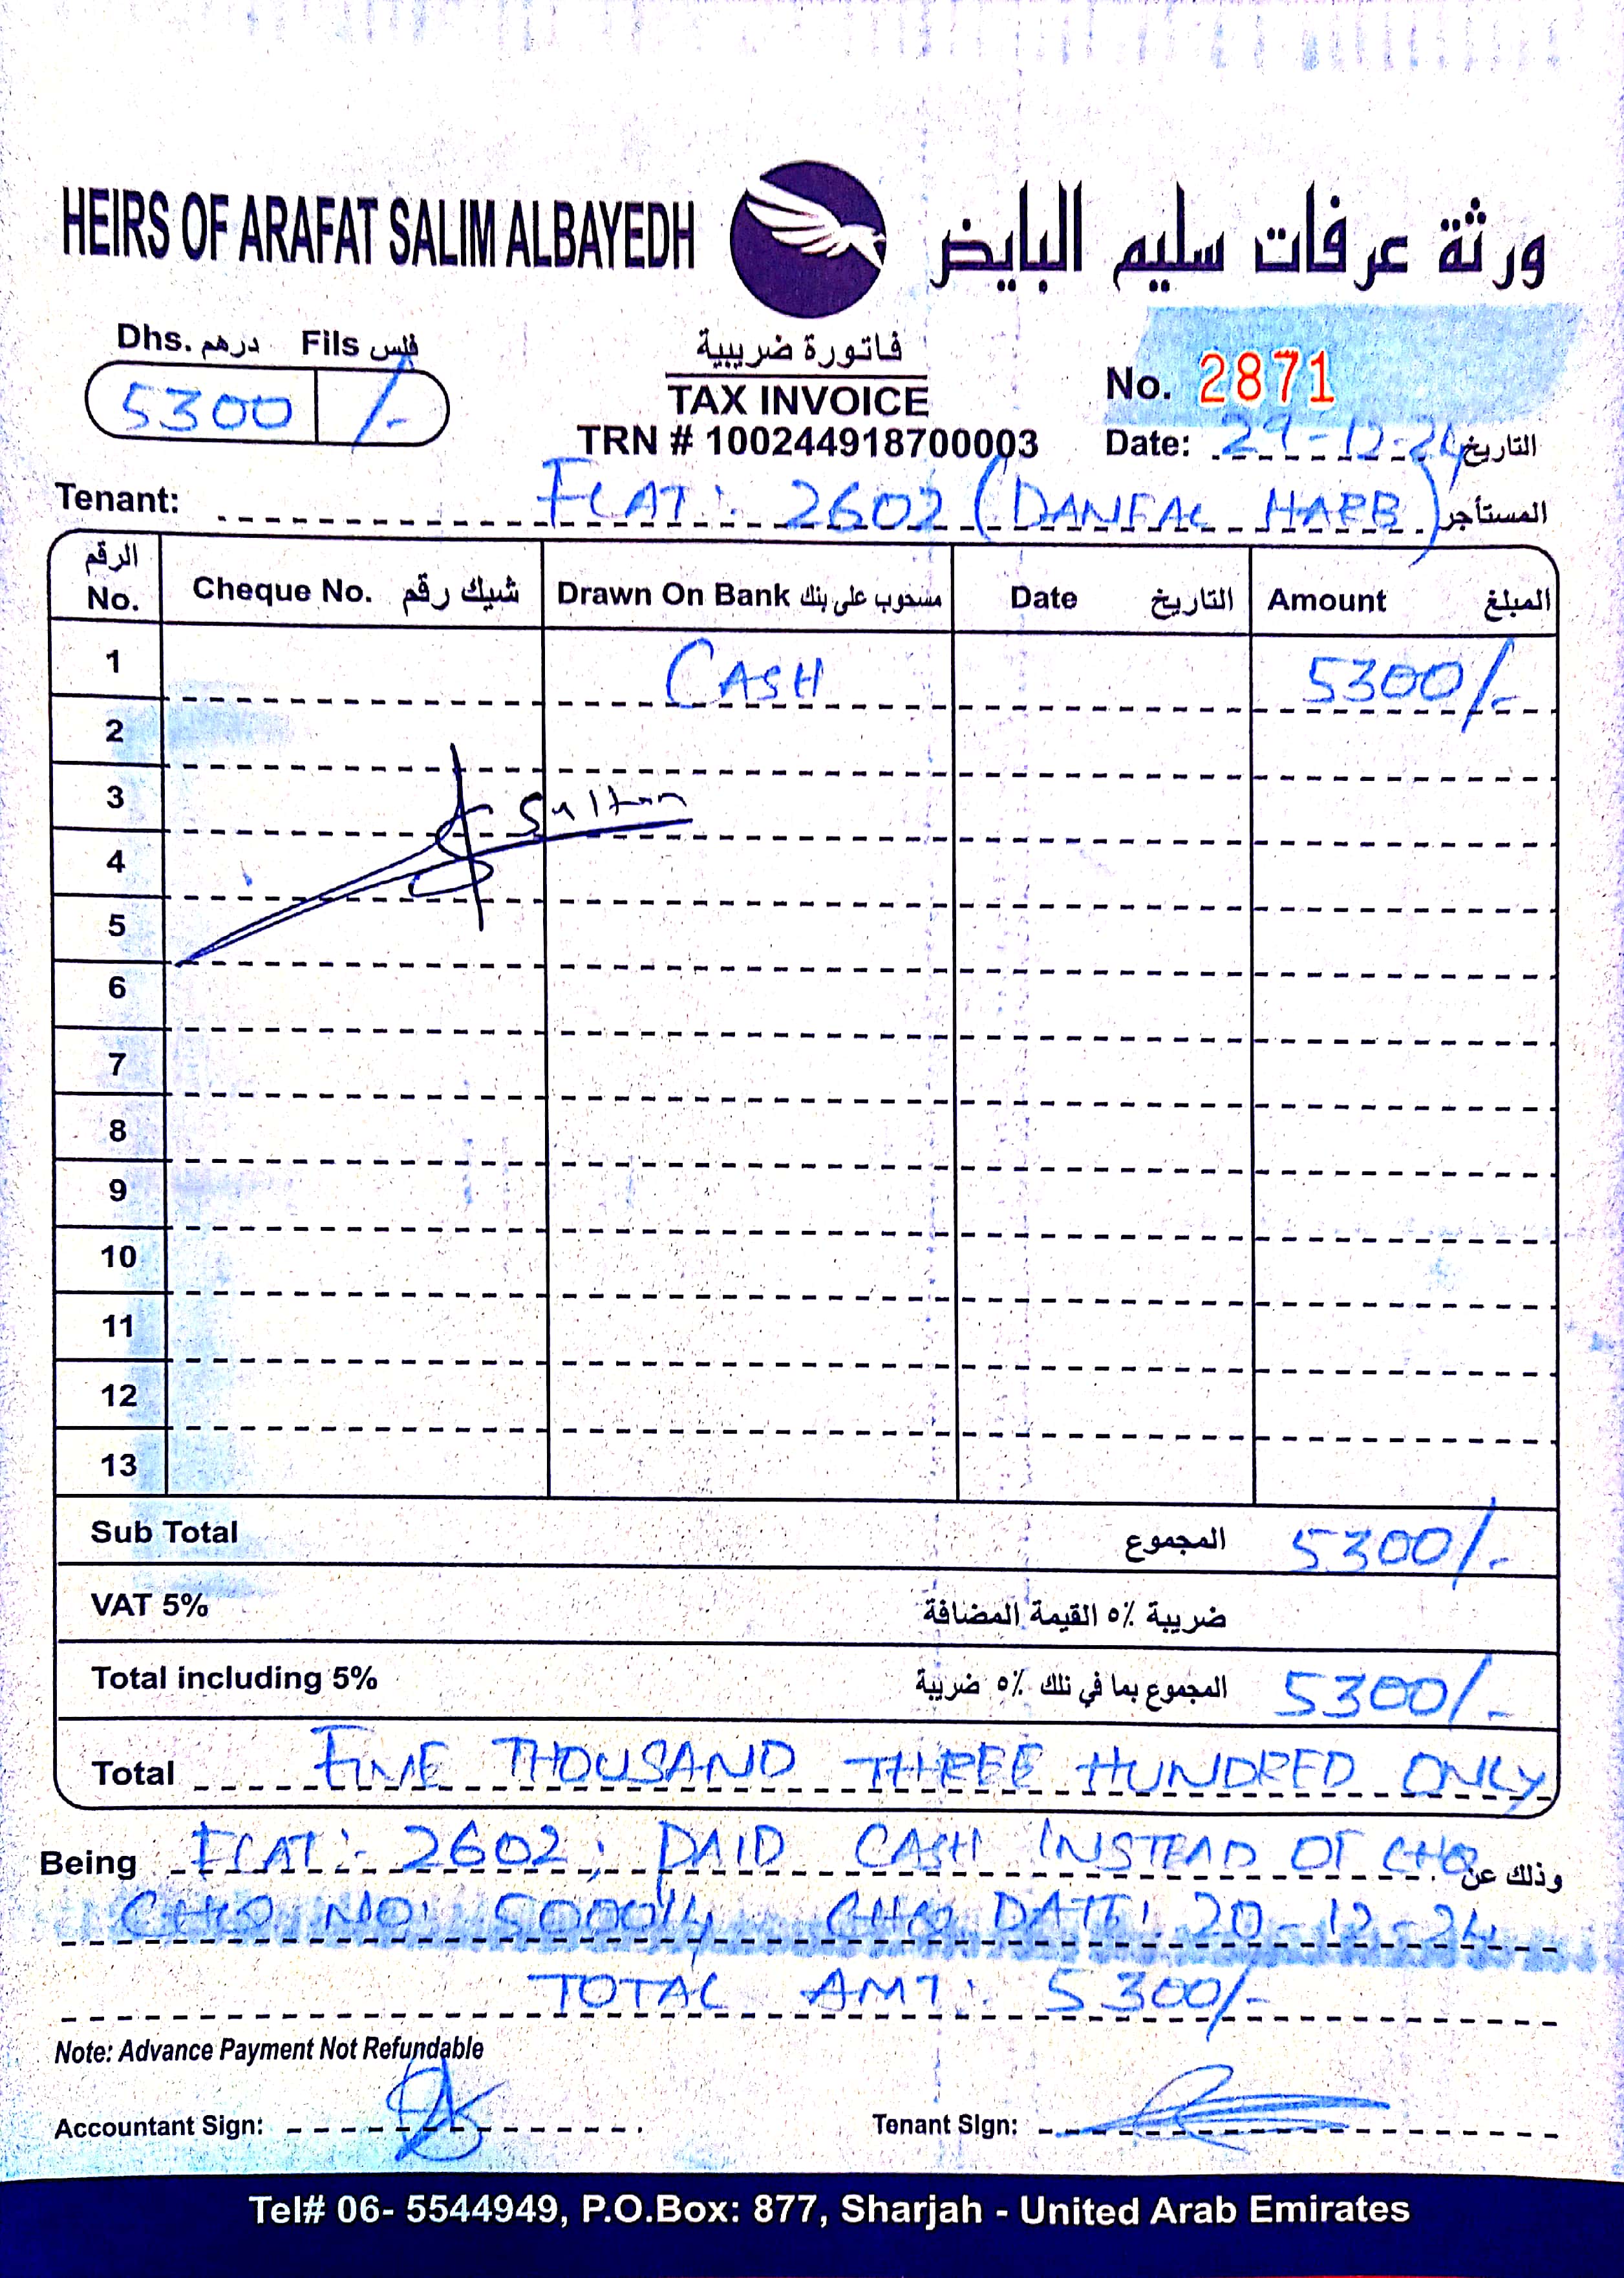 HEIRS OF ARAFAT SALIM ALBAYEDH
ورثة عرفات سليم البايض
Dhs. درهم Fils فلس
5300 /-
فاتورة ضريبية
TAX INVOICE
TRN # 100244918700003
No. 2871
Date: 29-12-24 التاريخ
Tenant: FLAT: 2602 (DANFAL HARB) المستأجر
الرقم No. Cheque No. شيك رقم Drawn On Bank مسحوب على بنك Date التاريخ Amount المبلغ
1 CASH 5300/-
2
3 Sultan
4
5
6
7
8
9
10
11
12
13
Sub Total المجموع 5300/-
VAT 5% ضريبة ٥٪ القيمة المضافة
Total including 5% المجموع بما في ذلك ٥٪ ضريبة 5300/-
Total FIVE THOUSAND THREE HUNDRED ONLY
Being FLAT: 2602; PAID CASH INSTEAD OF CHQ وذلك عن
CHQ NO: 500014 CHQ DATE: 20-12-24
TOTAL AMT: 5300/-
Note: Advance Payment Not Refundable
Accountant Sign:
Tenant Sign:
Tel# 06- 5544949, P.O.Box: 877, Sharjah - United Arab Emirates